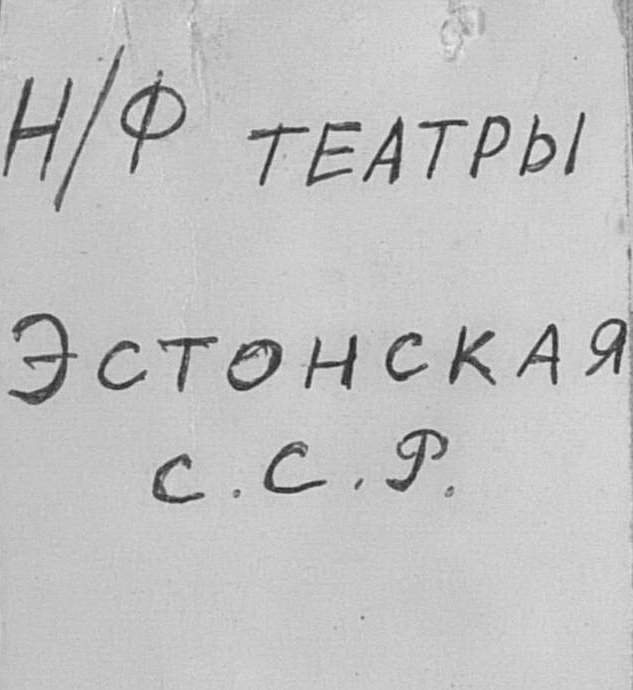 Н/Ф ТЕАТРЫ
ЭСТОНСКАЯ
С.С.Р.